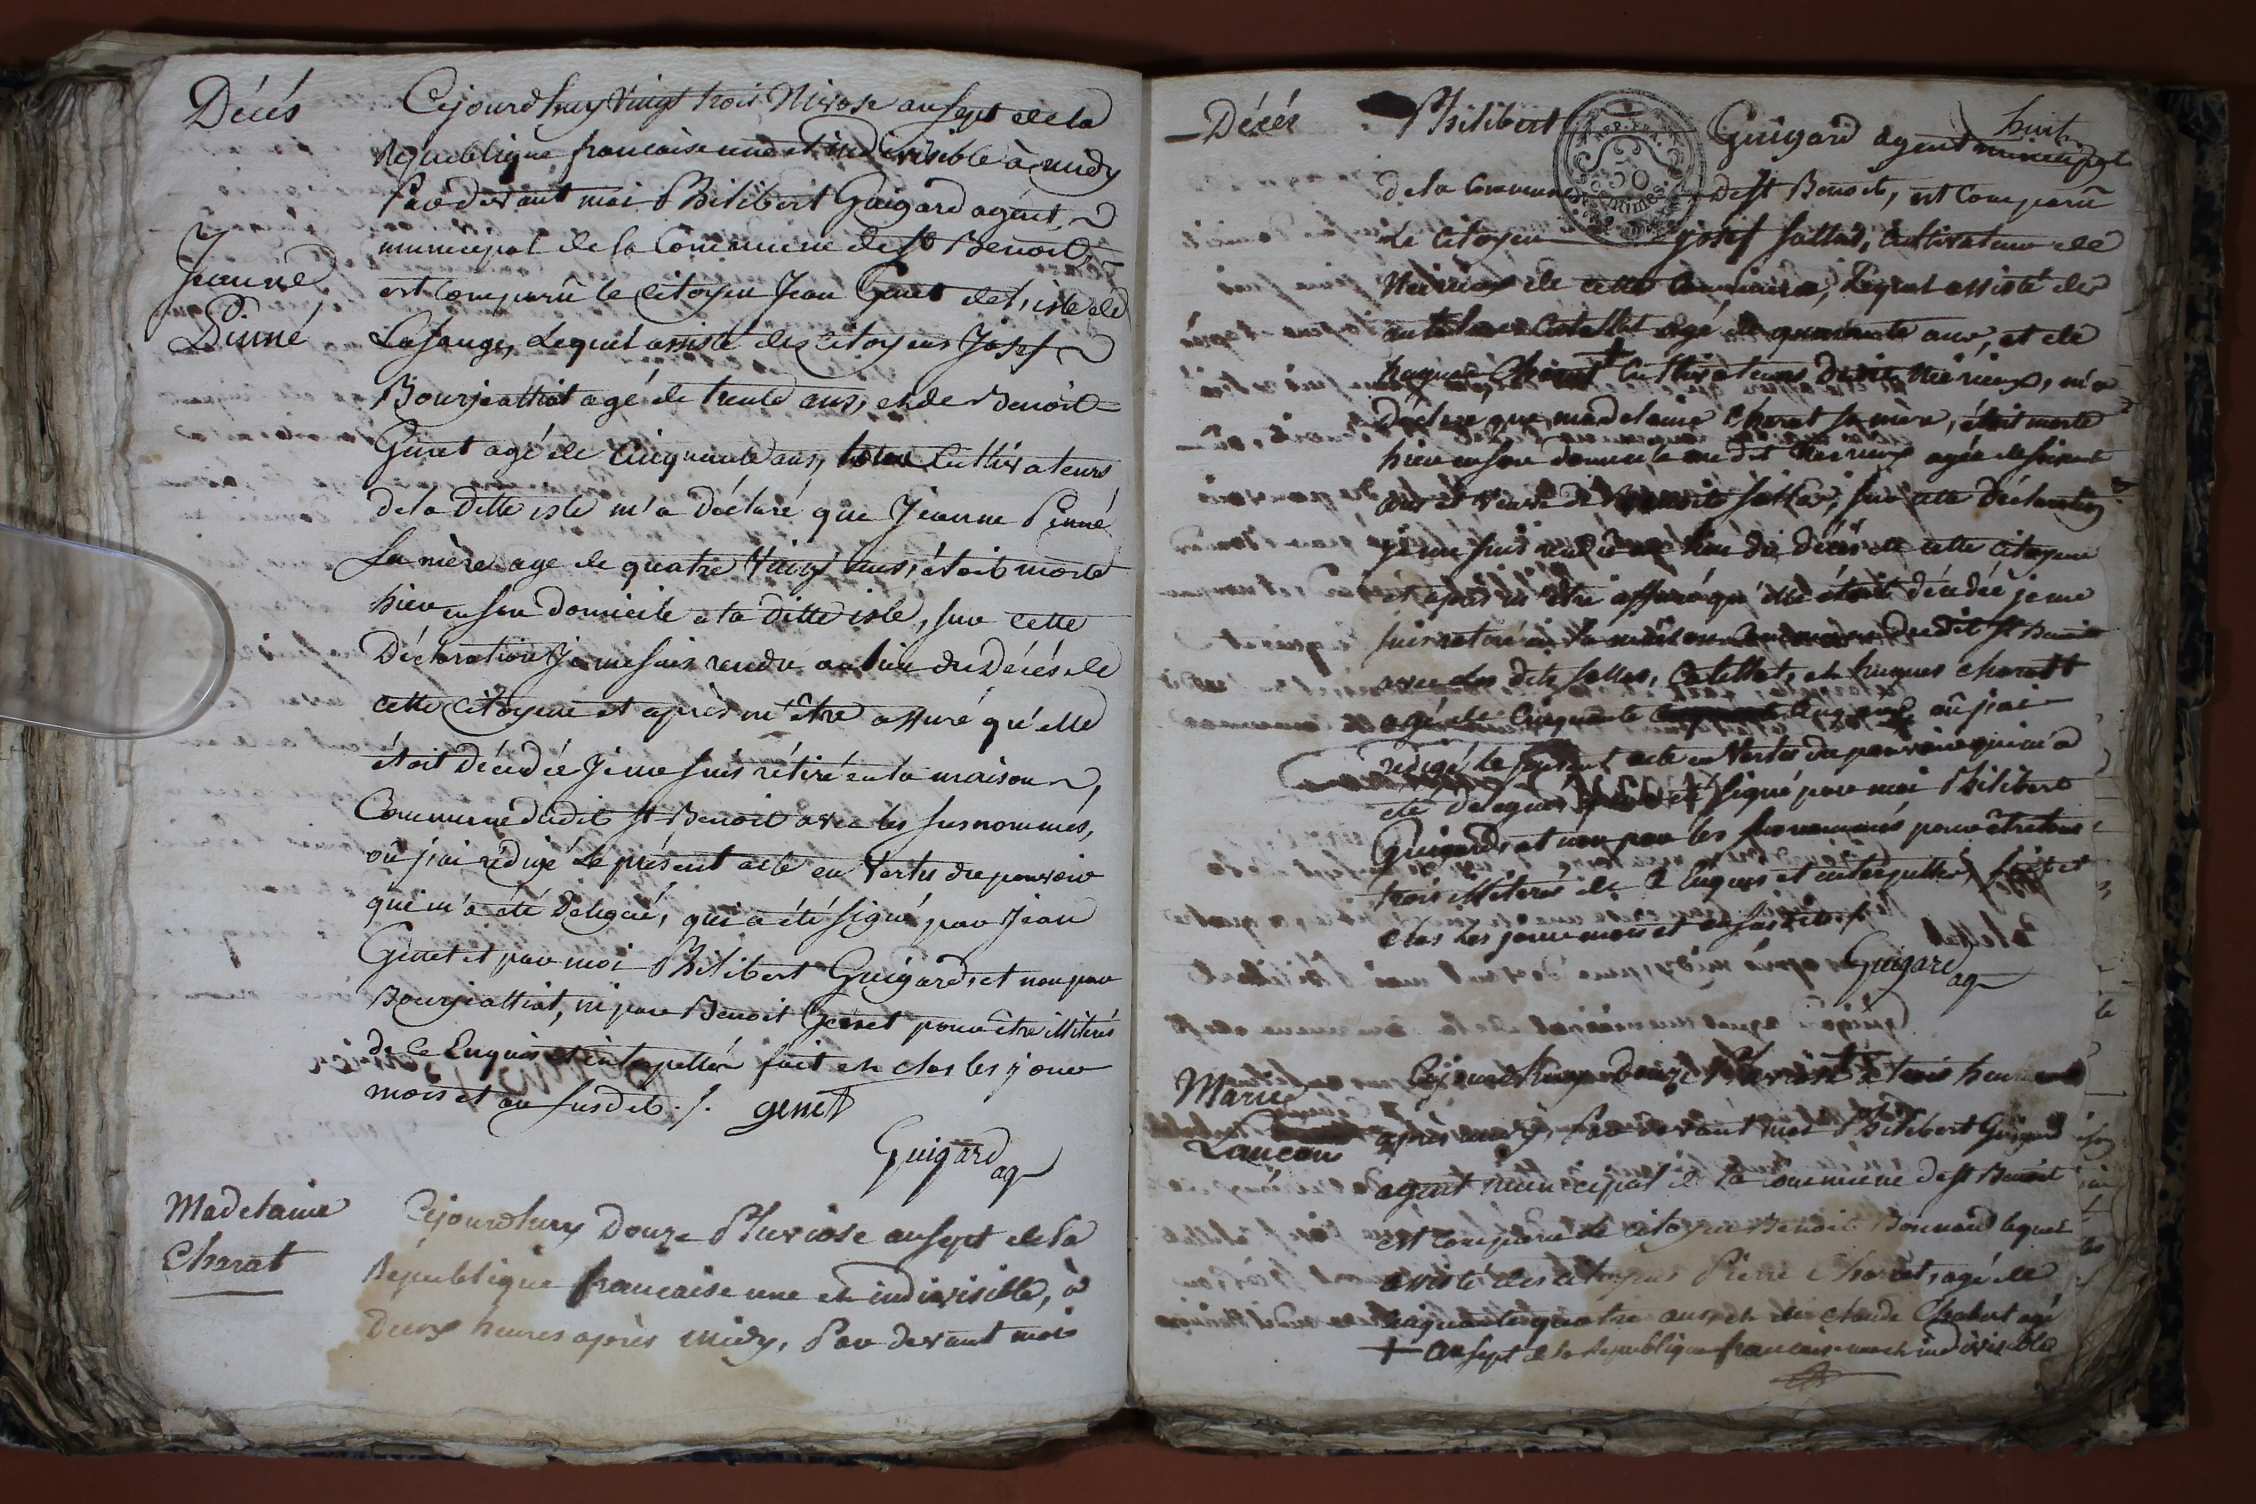 Décés
Cejourdhuy Vingt trois Nivose an sept de la
République francaise une et indivisible à midy
Par devant moi Philibert Guigard agent
municipal de la Commune de St Benoit,
est comparû le citoyen Jean Genet de l'isle de
Jeanne
Pinné
Lasauge, Lequel assisté des citoyens Josef
Bourjeattiat agé de trente ans, et de Benoit
Genet agé de Cinquante ans, tous Cultivateurs
de la ditte isle m'a déclaré que Jeanne Pinné
sa mère agé de quatre Vingt ans, étoit morte
hier en son domicile a la ditte isle, sur cette
Déclaration Je me suis rendu au lieu du Décés de
cette citoyene et après m'être assuré qu'elle
étoit décédée Je me suis rétiré en la maison
Commune dudit St Benoit avec les susnommés,
où j'ai rédigé Le présent acte en Vertu du pouvoir
qui m'a été Délegué, qui a été signé par Jean
Genet et par moi Philibert Guigard, et non par
Bourjeattiat, ni par Benoit Genet pour être illiterés
de ce Enquis et interpellés fait et clos les jour
mois et an susdit ./. genet
Guigard
ag
Madelaine
Charat
Cejourdhuy Douze Pluviose an sept de la
République francaise une et indivisible, à
Deux heures après midy, Par devant moi
huit
Décés
Philibert Guigard agent municipal
de la Commune de St Benoit, est comparû
REP. FRA.
50
CENTIMES
Le Citoyen josef sallat, Cultivateur de
de cette Commune, Lequel assisté de
Catellat agé de quarante ans, et de
hugues Charat Cultivateurs m'a
déclaré que madelaine Charat sa mère, étoit morte
hier en son domicile au dit agée de soixante
ans et veuve de sur cette déclaration
je me suis rendu au lieu du décés de cette citoyene
et après m'être assuré qu'elle étoit décédée je me
suis retiré en la maison Commune dudit St Benoit
avec les dits Catellat, et hugues charat
agé de Cinquante où j'ai
rédigé le présent acte en Vertu du pouvoir qui m'a
été délegué signé par moi Philibert
Guigard, et non par les susnommés pour être tous
trois illiterés de ce Enquis et interpellés, fait et
clos les jour mois et an susdit ./.
Guigard
ag
Marie
Lancon
Cejourdhuy Douze Pluviose à trois heures
après midy, Par devant moi Philibert Guigard
agent municipal de la Commune de St Benoit
est comparu le citoyen Benoit Bonnard lequel
assisté des citoyens Pierre Charat, agé de
quatre ans, et de claude Chabert agé
+ an sept de la République francaise une et indivisible